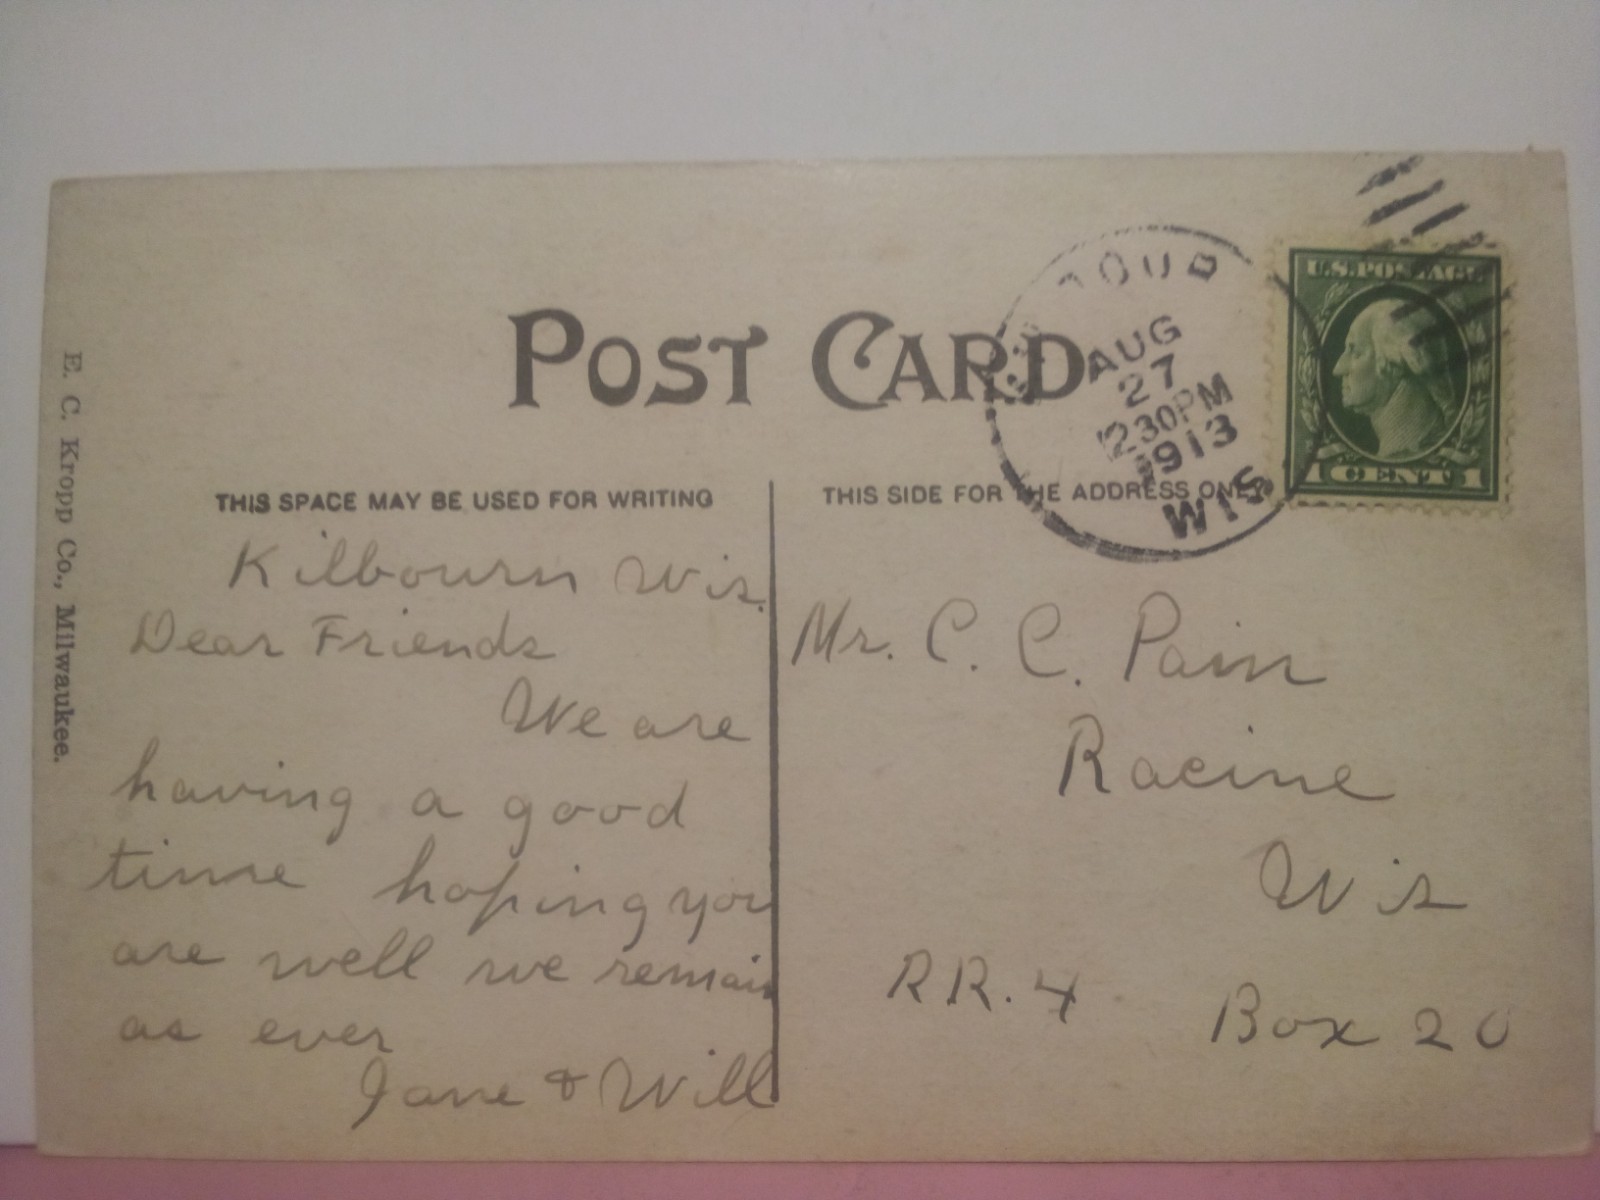 POST CARD
E. C. Kropp Co., Milwaukee.
THIS SPACE MAY BE USED FOR WRITING
Kilbourn Wis.
Dear Friends
We are
having a good
time hoping you
are well we remain
as ever
Jane & Will
THIS SIDE FOR THE ADDRESS ONLY
AUG
27
1230PM
1913
WIS
U.S. POSTAGE
1 CENT 1
Mr. C. C. Pain
Racine
Wis
RR. 4 Box 20